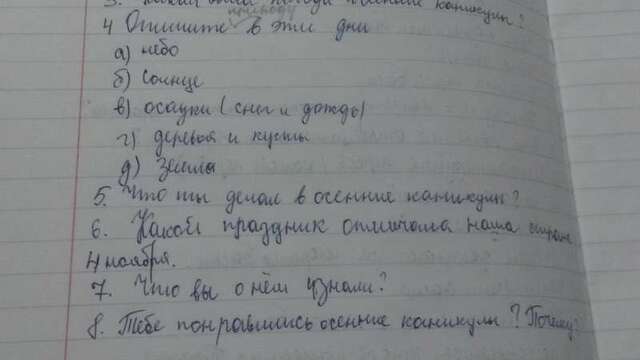 3. Какая была погода в осенние каникулы?
природу
4 Опишите в эти дни
а) небо
б) солнце
в) осадки (снег и дождь)
г) деревья и кусты
д) земля
5. Что ты делал в осенние каникулы?
6. Какой праздник отмечала наша страна
4 ноября.
7. Что вы о нём узнали?
8. Тебе понравились осенние каникулы? Почему?